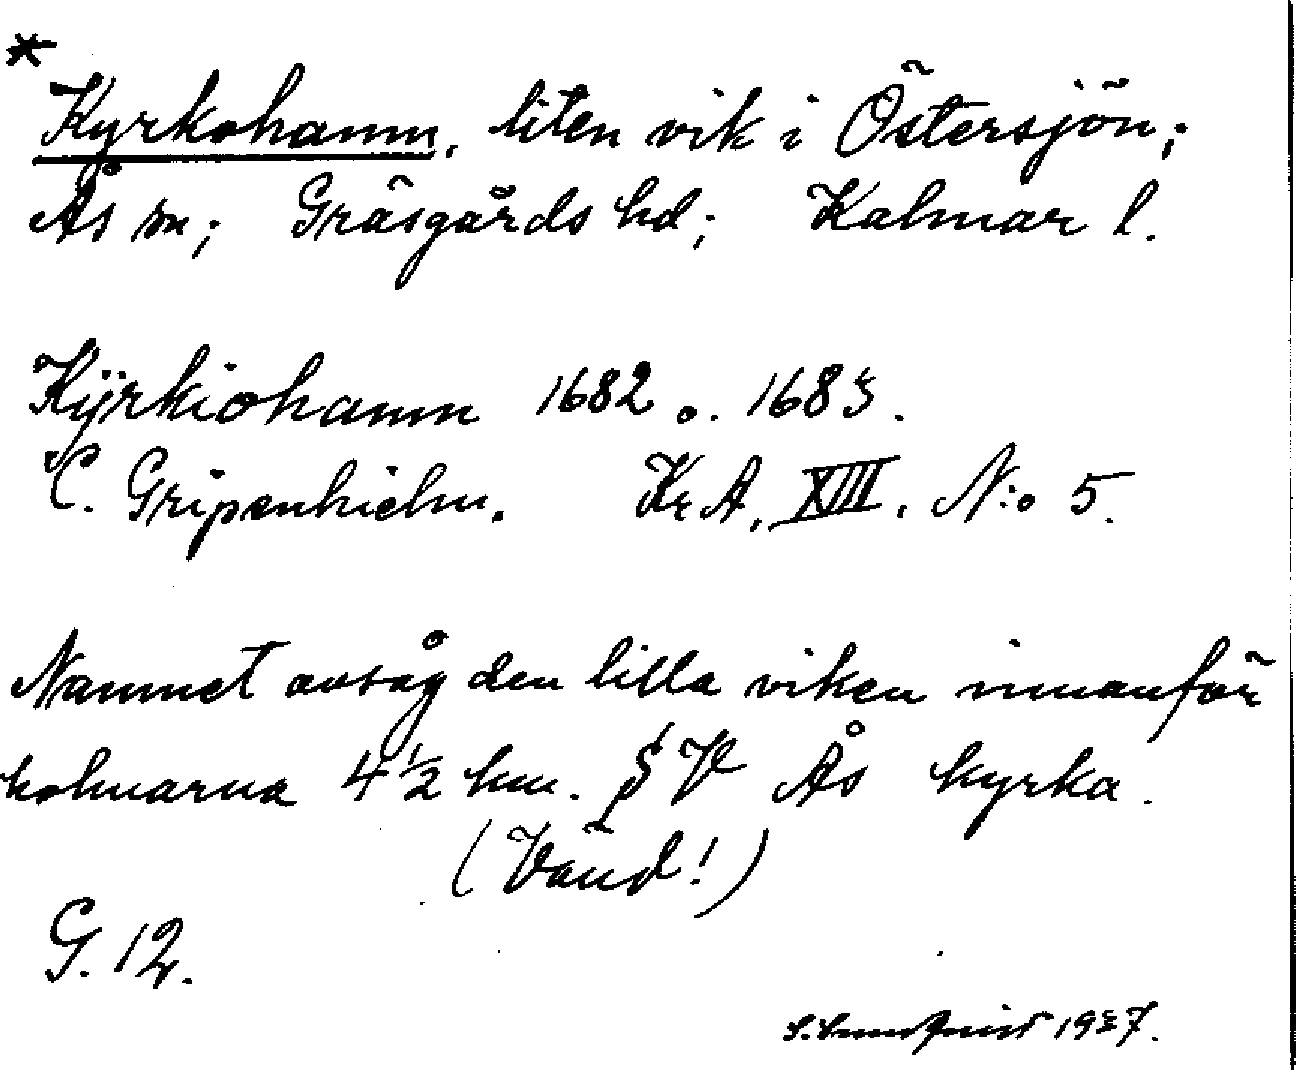 *
Kyrkohamn, liten vik i Östersjön;
Ås sn; Gräsgårds hd; Kalmar l.
Kÿrkiohamn 1682 o. 1683.
C. Gripenhielm. Kr A. XIII. N:o 5.
Namnet avsåg den lilla viken innanför
holmarna 4 1/2 km. SV Ås kyrka.
(Vänd!)
G. 12.
S. Lundquist 1937.